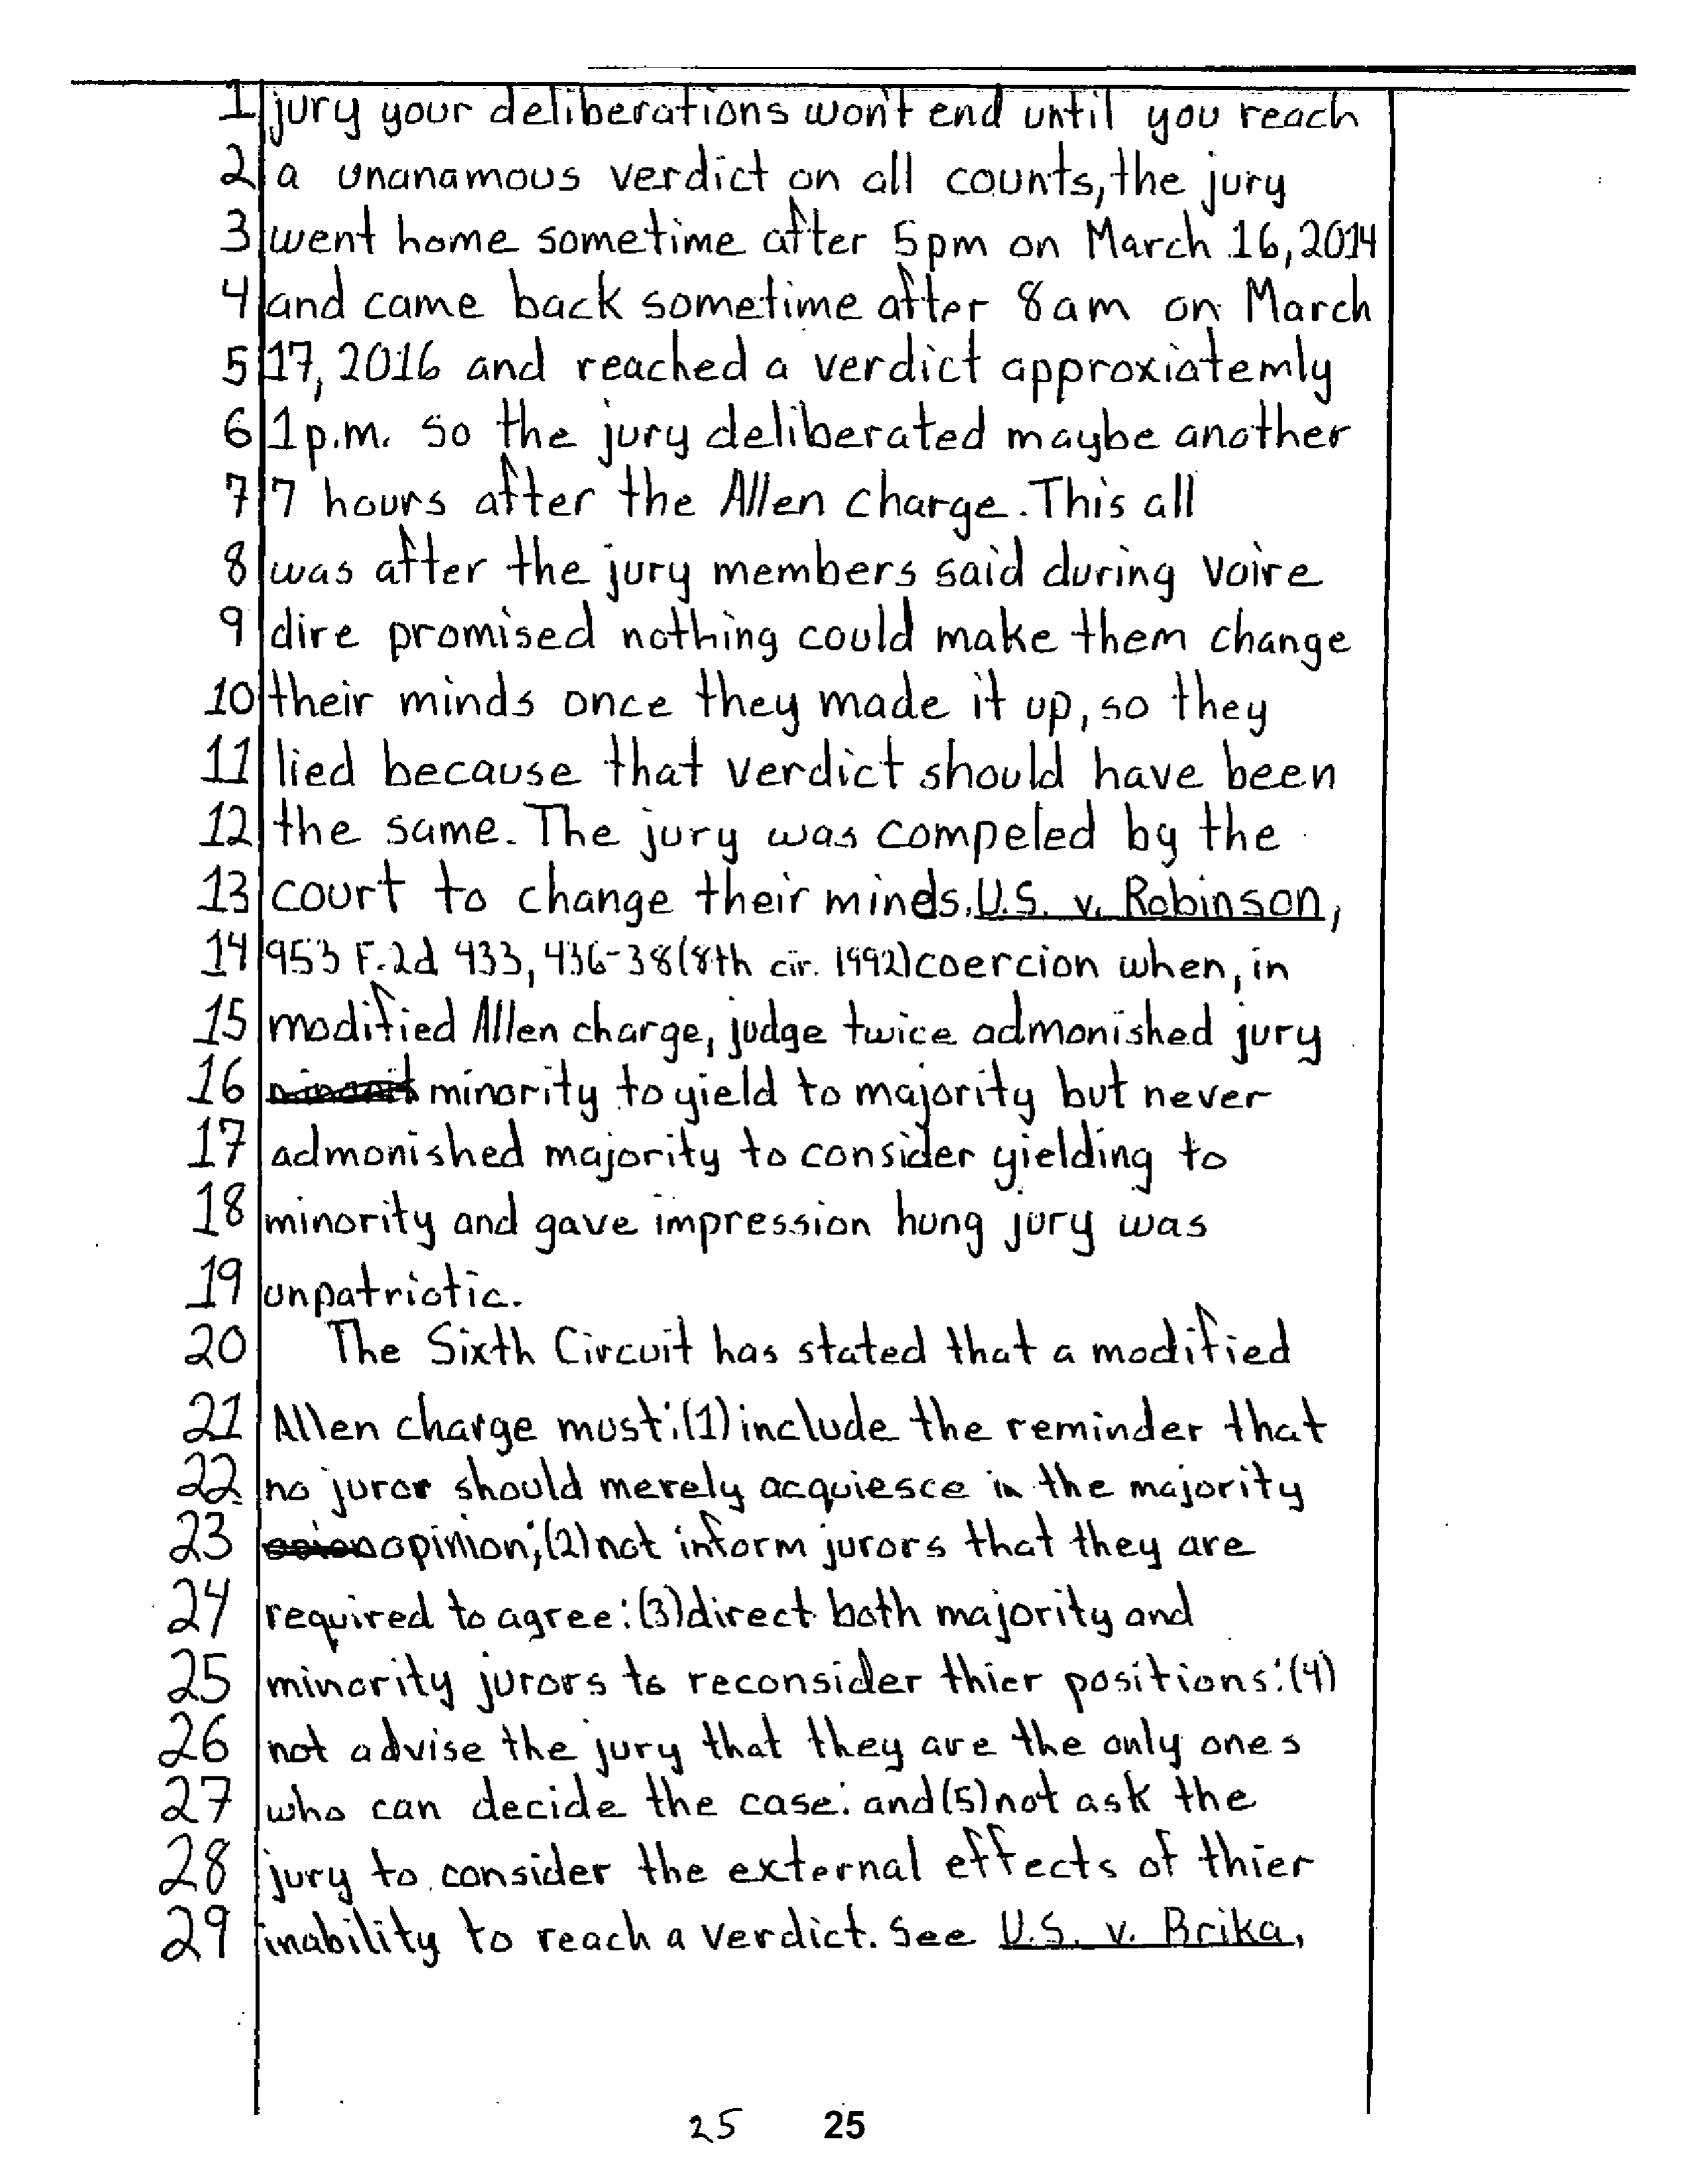 1 jury your deliberations won't end until you reach
2 a unanamous verdict on all counts, the jury
3 went home sometime after 5pm on March 16, 2014
4 and came back sometime after 8am on March
5 17, 2016 and reached a verdict approxiatemly
6 1p.m. so the jury deliberated maybe another
7 7 hours after the Allen charge. This all
8 was after the jury members said during voire
9 dire promised nothing could make them change
10 their minds once they made it up, so they
11 lied because that verdict should have been
12 the same. The jury was compeled by the
13 court to change their minds. U.S. v. Robinson,
14 953 F.2d 433, 436-38 (8th cir. 1992) coercion when, in
15 modified Allen charge, judge twice admonished jury
16 minority to yield to majority but never
17 admonished majority to consider yielding to
18 minority and gave impression hung jury was
19 unpatriotic.
20 The Sixth Circuit has stated that a modified
21 Allen charge must: (1) include the reminder that
22 no juror should merely acquiesce in the majority
23 opinion; (2) not inform jurors that they are
24 required to agree: (3) direct both majority and
25 minority jurors to reconsider thier positions: (4)
26 not advise the jury that they are the only ones
27 who can decide the case: and (5) not ask the
28 jury to consider the external effects of thier
29 inability to reach a verdict. See U.S. v. Brika,
25 25